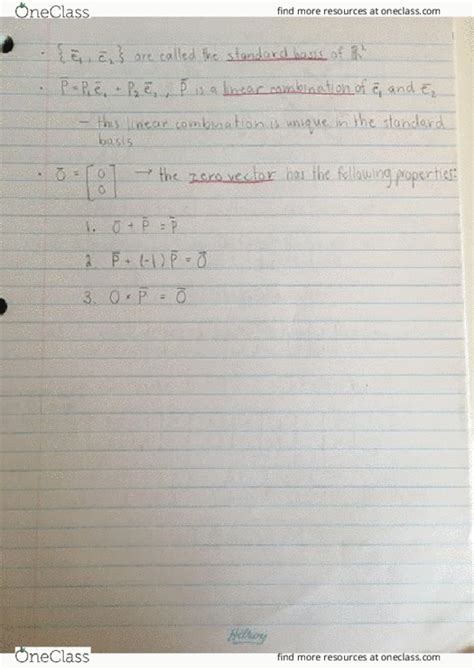 OneClass
find more resources at oneclass.com
· {ē₁, ē₂} are called the standard basis of ℝ²
· P̄ = P₁ē₁ + P₂ē₂, P̄ is a linear combination of ē₁ and ē₂
– this linear combination is unique in the standard
basis
· Ō = [0 0] → the zero vector has the following properties:
1. Ō + P̄ = P̄
2. P̄ + (-1)P̄ = Ō
3. 0 · P̄ = Ō
Hilroy
OneClass
find more resources at oneclass.com